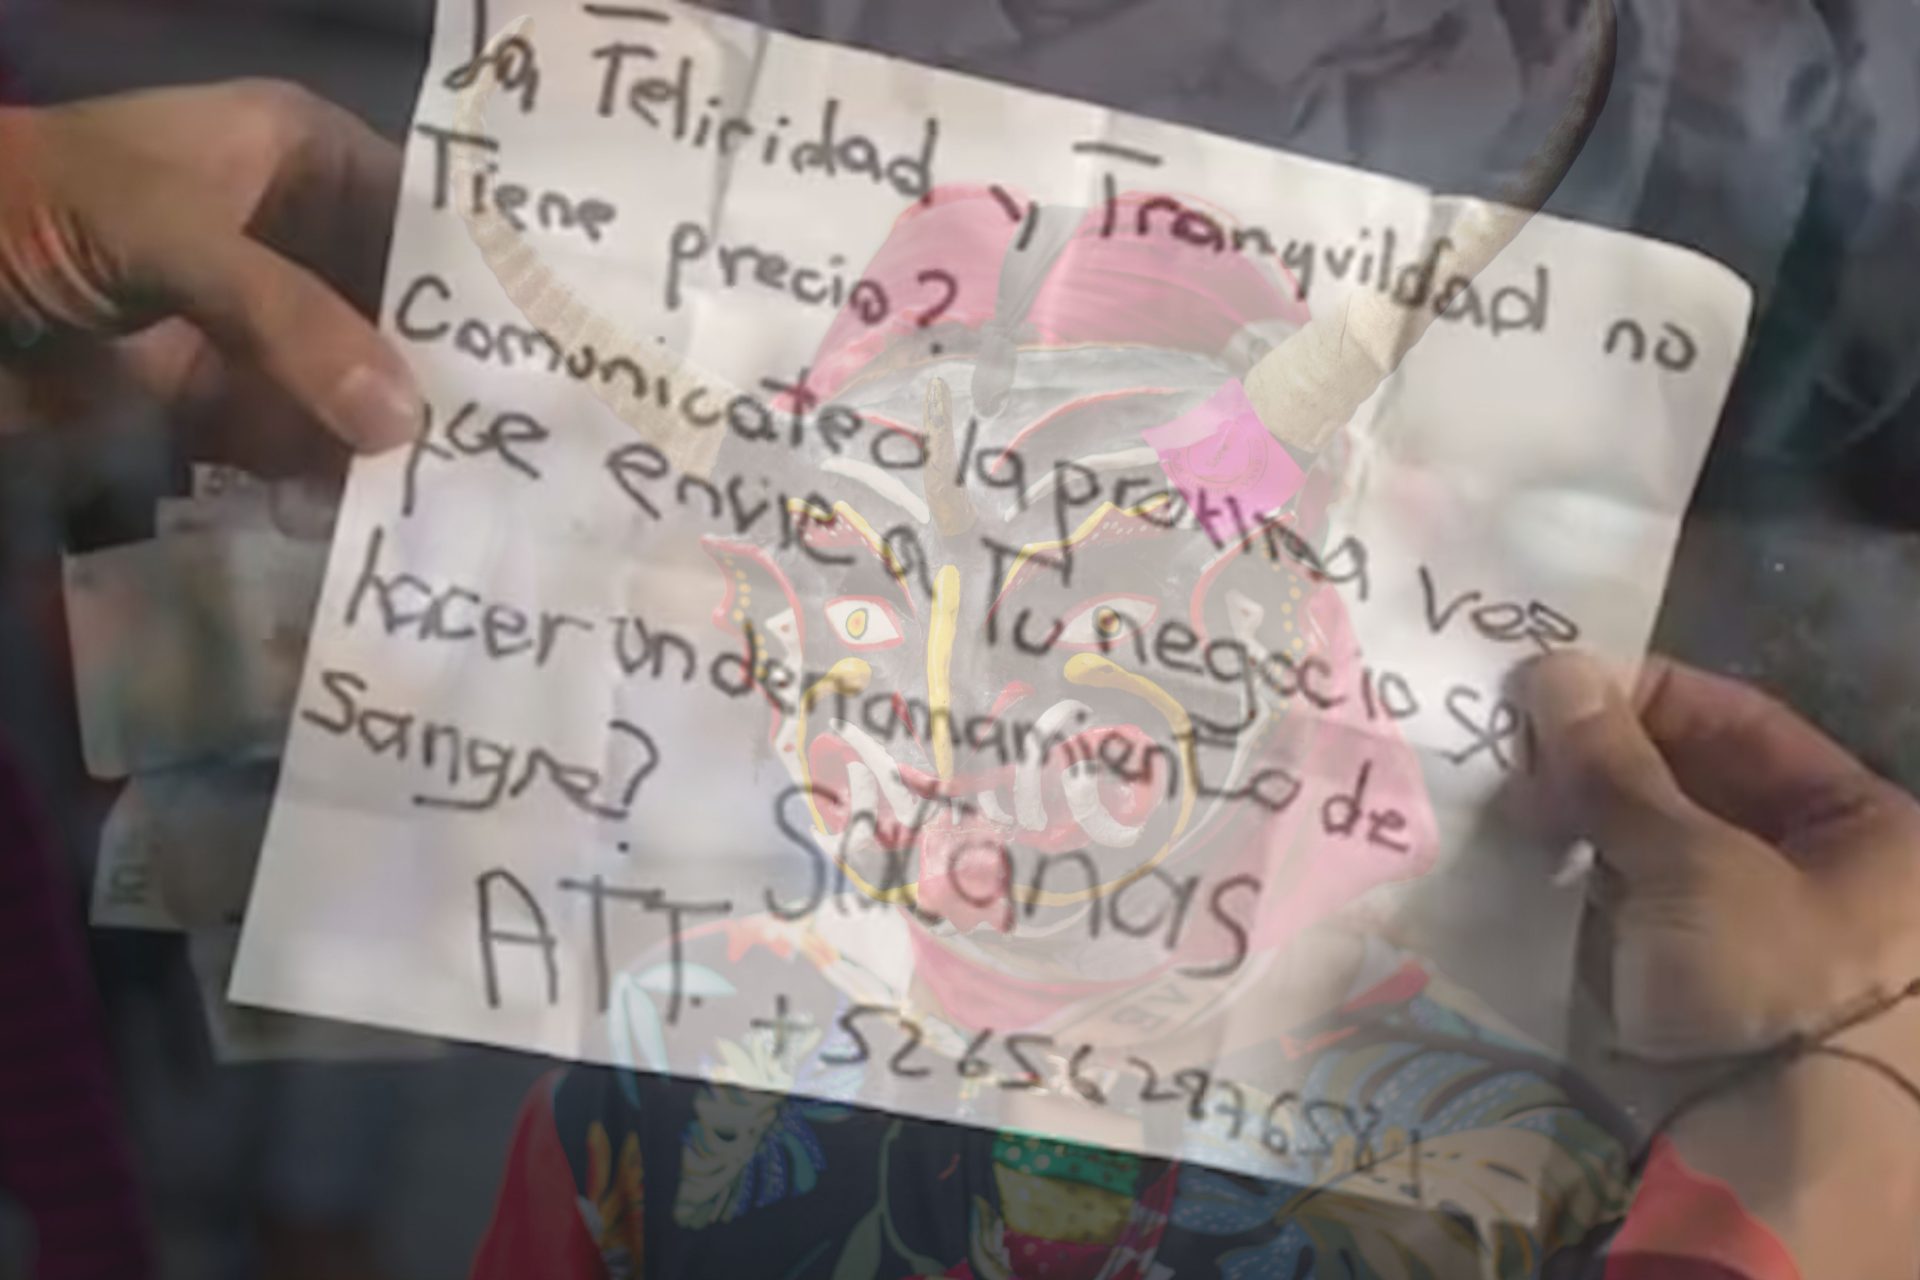 La Felicidad y Tranquildad no
Tiene precio?
Comunicate a la proxima vez
que envie a Tu negocio sera
hacer un derramamiento de
Sangre?
ATT. Satanas
+52656297658